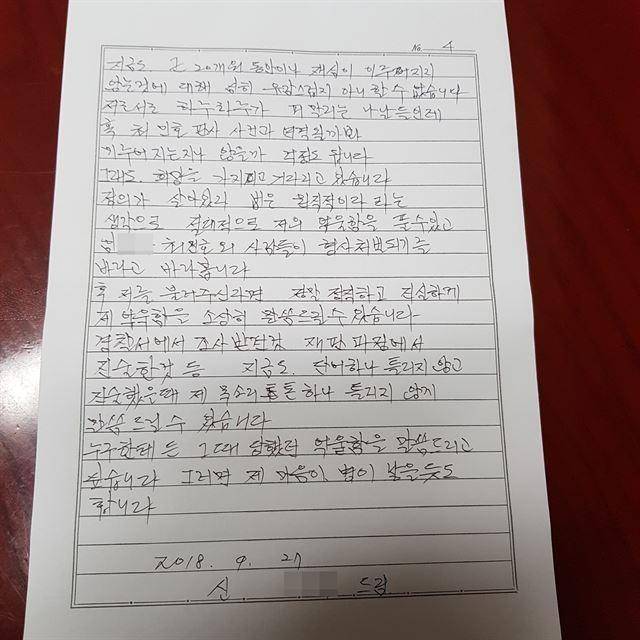 No. 4
지금도 근 20개월 동안이나 재심이 이루어지지
않는것에 대해 심히 유감스럽지 아니할 수 없습니다
저로서는 하루하루가 피 말리는 나날들인데
혹 최 민호 판사 사건과 연격될가봐
미루어 지는지나 않을까 걱정도 됩니다
그래도 희망을 가지고 기다리고 있습니다
정의가 살아있다 법은 원칙적이라 라는
생각으로 절대적으로 저의 억울함을 풀수있고
최민호 외 사람들이 형사처벌되기를
바라고 바라옵니다
혹 저를 불러주신다면 정말 정확하고 진실하게
제 억울함을 소상히 말씀드릴수 있습니다
경찰서에서 조사 받던것 재판 과정에서
진술한것 등 지금도 단어하나 틀리지 않고
진술했을때 제 목소리 톤하나 틀리지 않게
말씀 드릴 수 있습니다
누구한테 든 그때 당했던 억울함을 말씀드리고
싶습니다 그러면 제 마음이 병이 낳을듯도
합니다
2018. 9. 27
신 드림